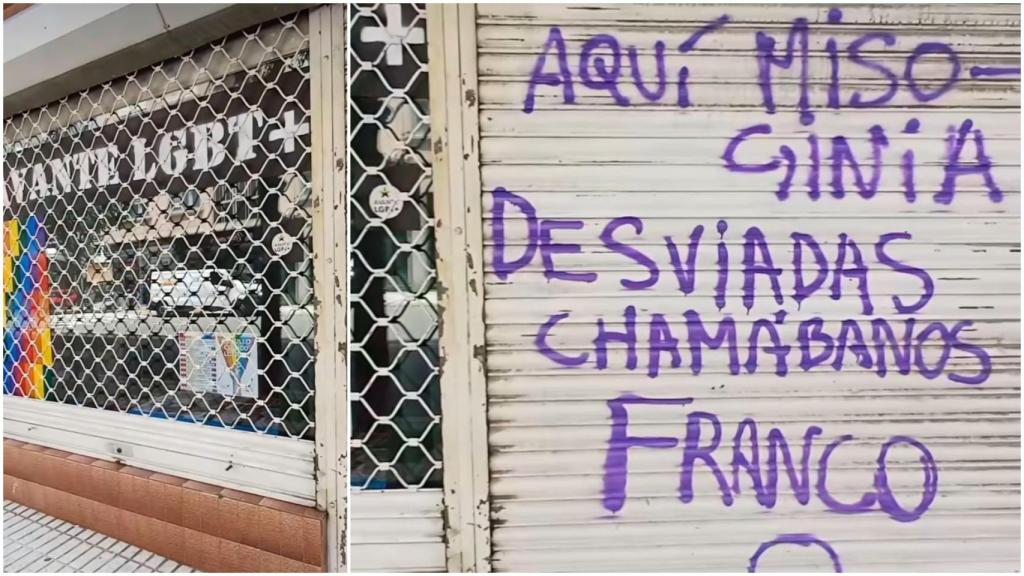 VANTE LGBT+
AVANTE
LGBT+
AQUÍ MISO-
GINIA
DESVIADAS
CHAMÁBANOS
FRANCO